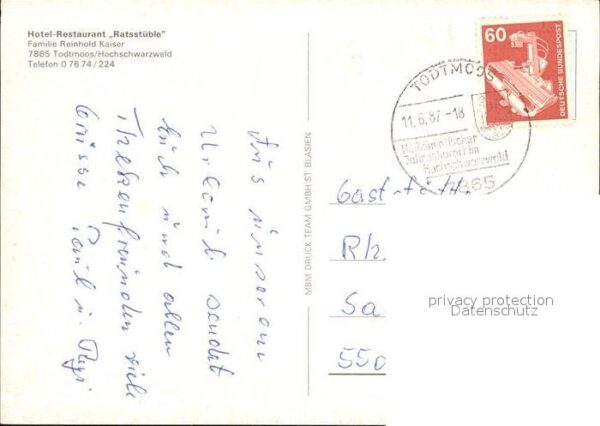 Hotel-Restaurant „Ratsstüble"
Familie Reinhold Kaiser
7865 Todtmoos/Hochschwarzwald
Telefon 0 76 74 / 224
60
DEUTSCHE BUNDESPOST
TODTMOOS
11.6.87-18
Heilklimatischer
Jahreskurort im
Hochschwarzwald
7865
MBM DRUCK TEAM GMBH ST. BLASIEN
Aus unserem
Urlaub sendet
Euch und allen
Thekenfreunden viele
Grüsse
Paul u.
Gast
Rh
Sa
550
privacy protection
Datenschutz